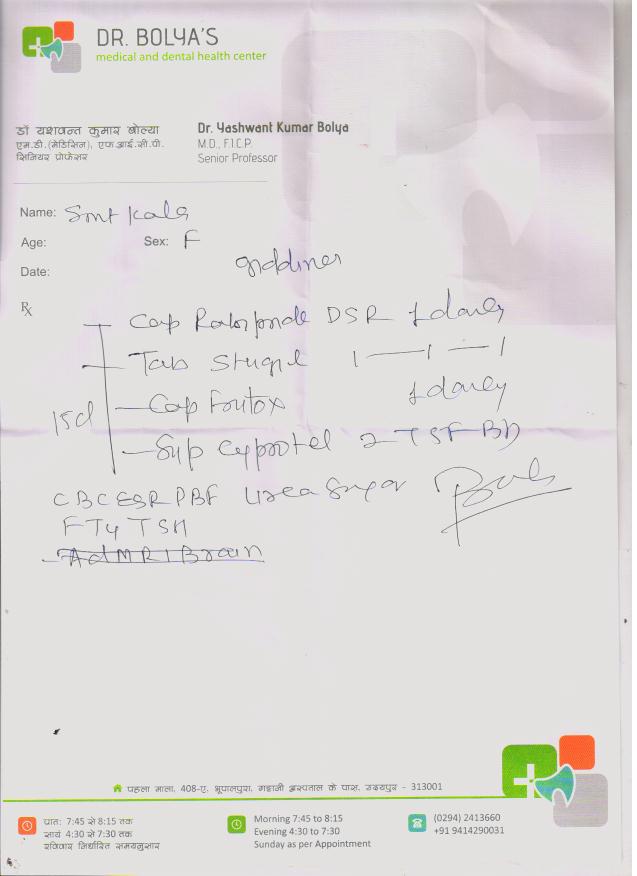 DR. BOLYA'S
medical and dental health center
डॉ यशवन्त कुमार बोल्या
एम.डी.(मेडिसिन), एफ.आई.सी.पी.
सिनियर प्रोफेसर
Dr. Yashwant Kumar Bolya
M.D., F.I.C.P.
Senior Professor
Name: Smt Kala
Age: Sex: F
Date:
giddines
Rx
Cap DSR 1 daily
Tab Stugil 1 — 1 — 1
15d Cap 1 daily
Syp 2 TSF BD
CBC ESR PBF Urea Sugar
FT4 TSH
Ad MRI Brain
पहला माला, 408-ए, भूपालपुरा, गट्टानी अस्पताल के पास, उदयपुर - 313001
प्रात: 7:45 से 8:15 तक
सायं 4:30 से 7:30 तक
रविवार निर्धारित समयनुसार
Morning 7:45 to 8:15
Evening 4:30 to 7:30
Sunday as per Appointment
(0294) 2413660
+91 9414290031